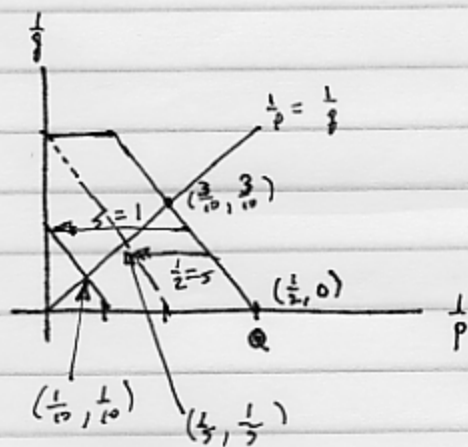 1/q
1/p = 1/q
(3/10, 3/10)
s = 1
1/2 = s
(1/2, 0)
1/p
Q
(1/10, 1/10)
(1/5, 1/5)